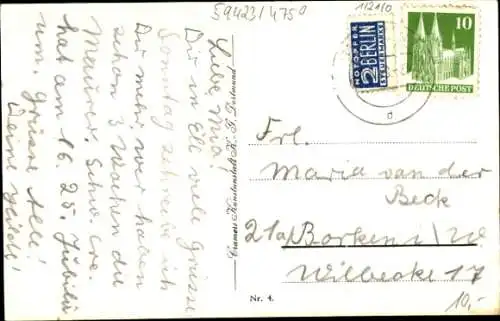 59423/475⁰
1/21/0
Liebe Mia!
Dir in Eile viele Grüsse
Sonntag schreibe ich
Dir mehr, wir haben
schon 3 Wochen die
Maurer. Schw.
hat am 16. 25. Jubilä
um. Grüsse Alle!
Deine
Cramers Kunstanstalt K. G. Dortmund
Nr. 4.
NOTOPFER
2 BERLIN
STEUERMARKE
10
DEUTSCHE POST
Frl.
Maria van der
Beek
21a/Borken i/W
Wilbecke 17
10,-